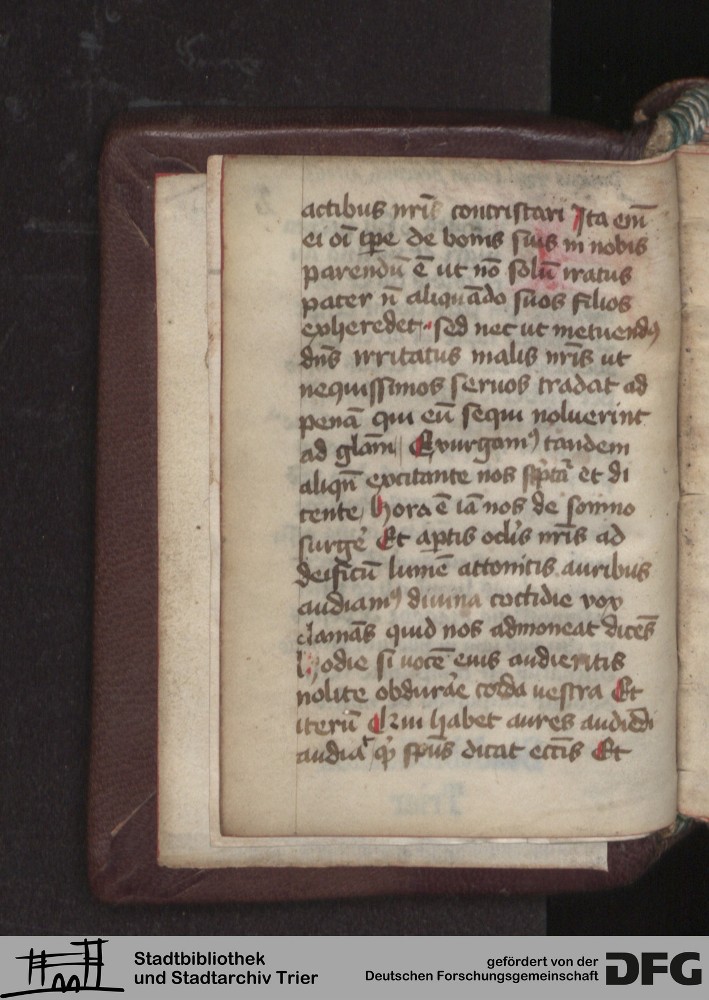 actibus nr̄is contristari Ita em̄
ei oī tp̄e de bonis suis in nobis
parendū ē ut nō solū iratus
pater n̄ aliquādo suos filios
exheredet sed nec ut metuendꝯ
dn̄s irritatus malis nr̄is ut
nequissimos seruos tradat ad
penā qui eū sequi noluerint
ad glām Exurgamꝯ tandem
aliqn̄ excitante nos sc̄ptā et di
cente hora ē iā nos de somno
surgē Et aptis oclis nr̄is ad
deificū lumē attonitis auribus
audiamꝯ diuina cottidie vox
clamās quid nos admoneat dicēs
hodie si uocē eius audieritis
nolite obdurāe corda uestra Et
iterū Qui habet aures audiēdi
audiat sp̄us dicat ecc̄iis Et
Stadtbibliothek
und Stadtarchiv Trier
gefördert von der
Deutschen Forschungsgemeinschaft
DFG